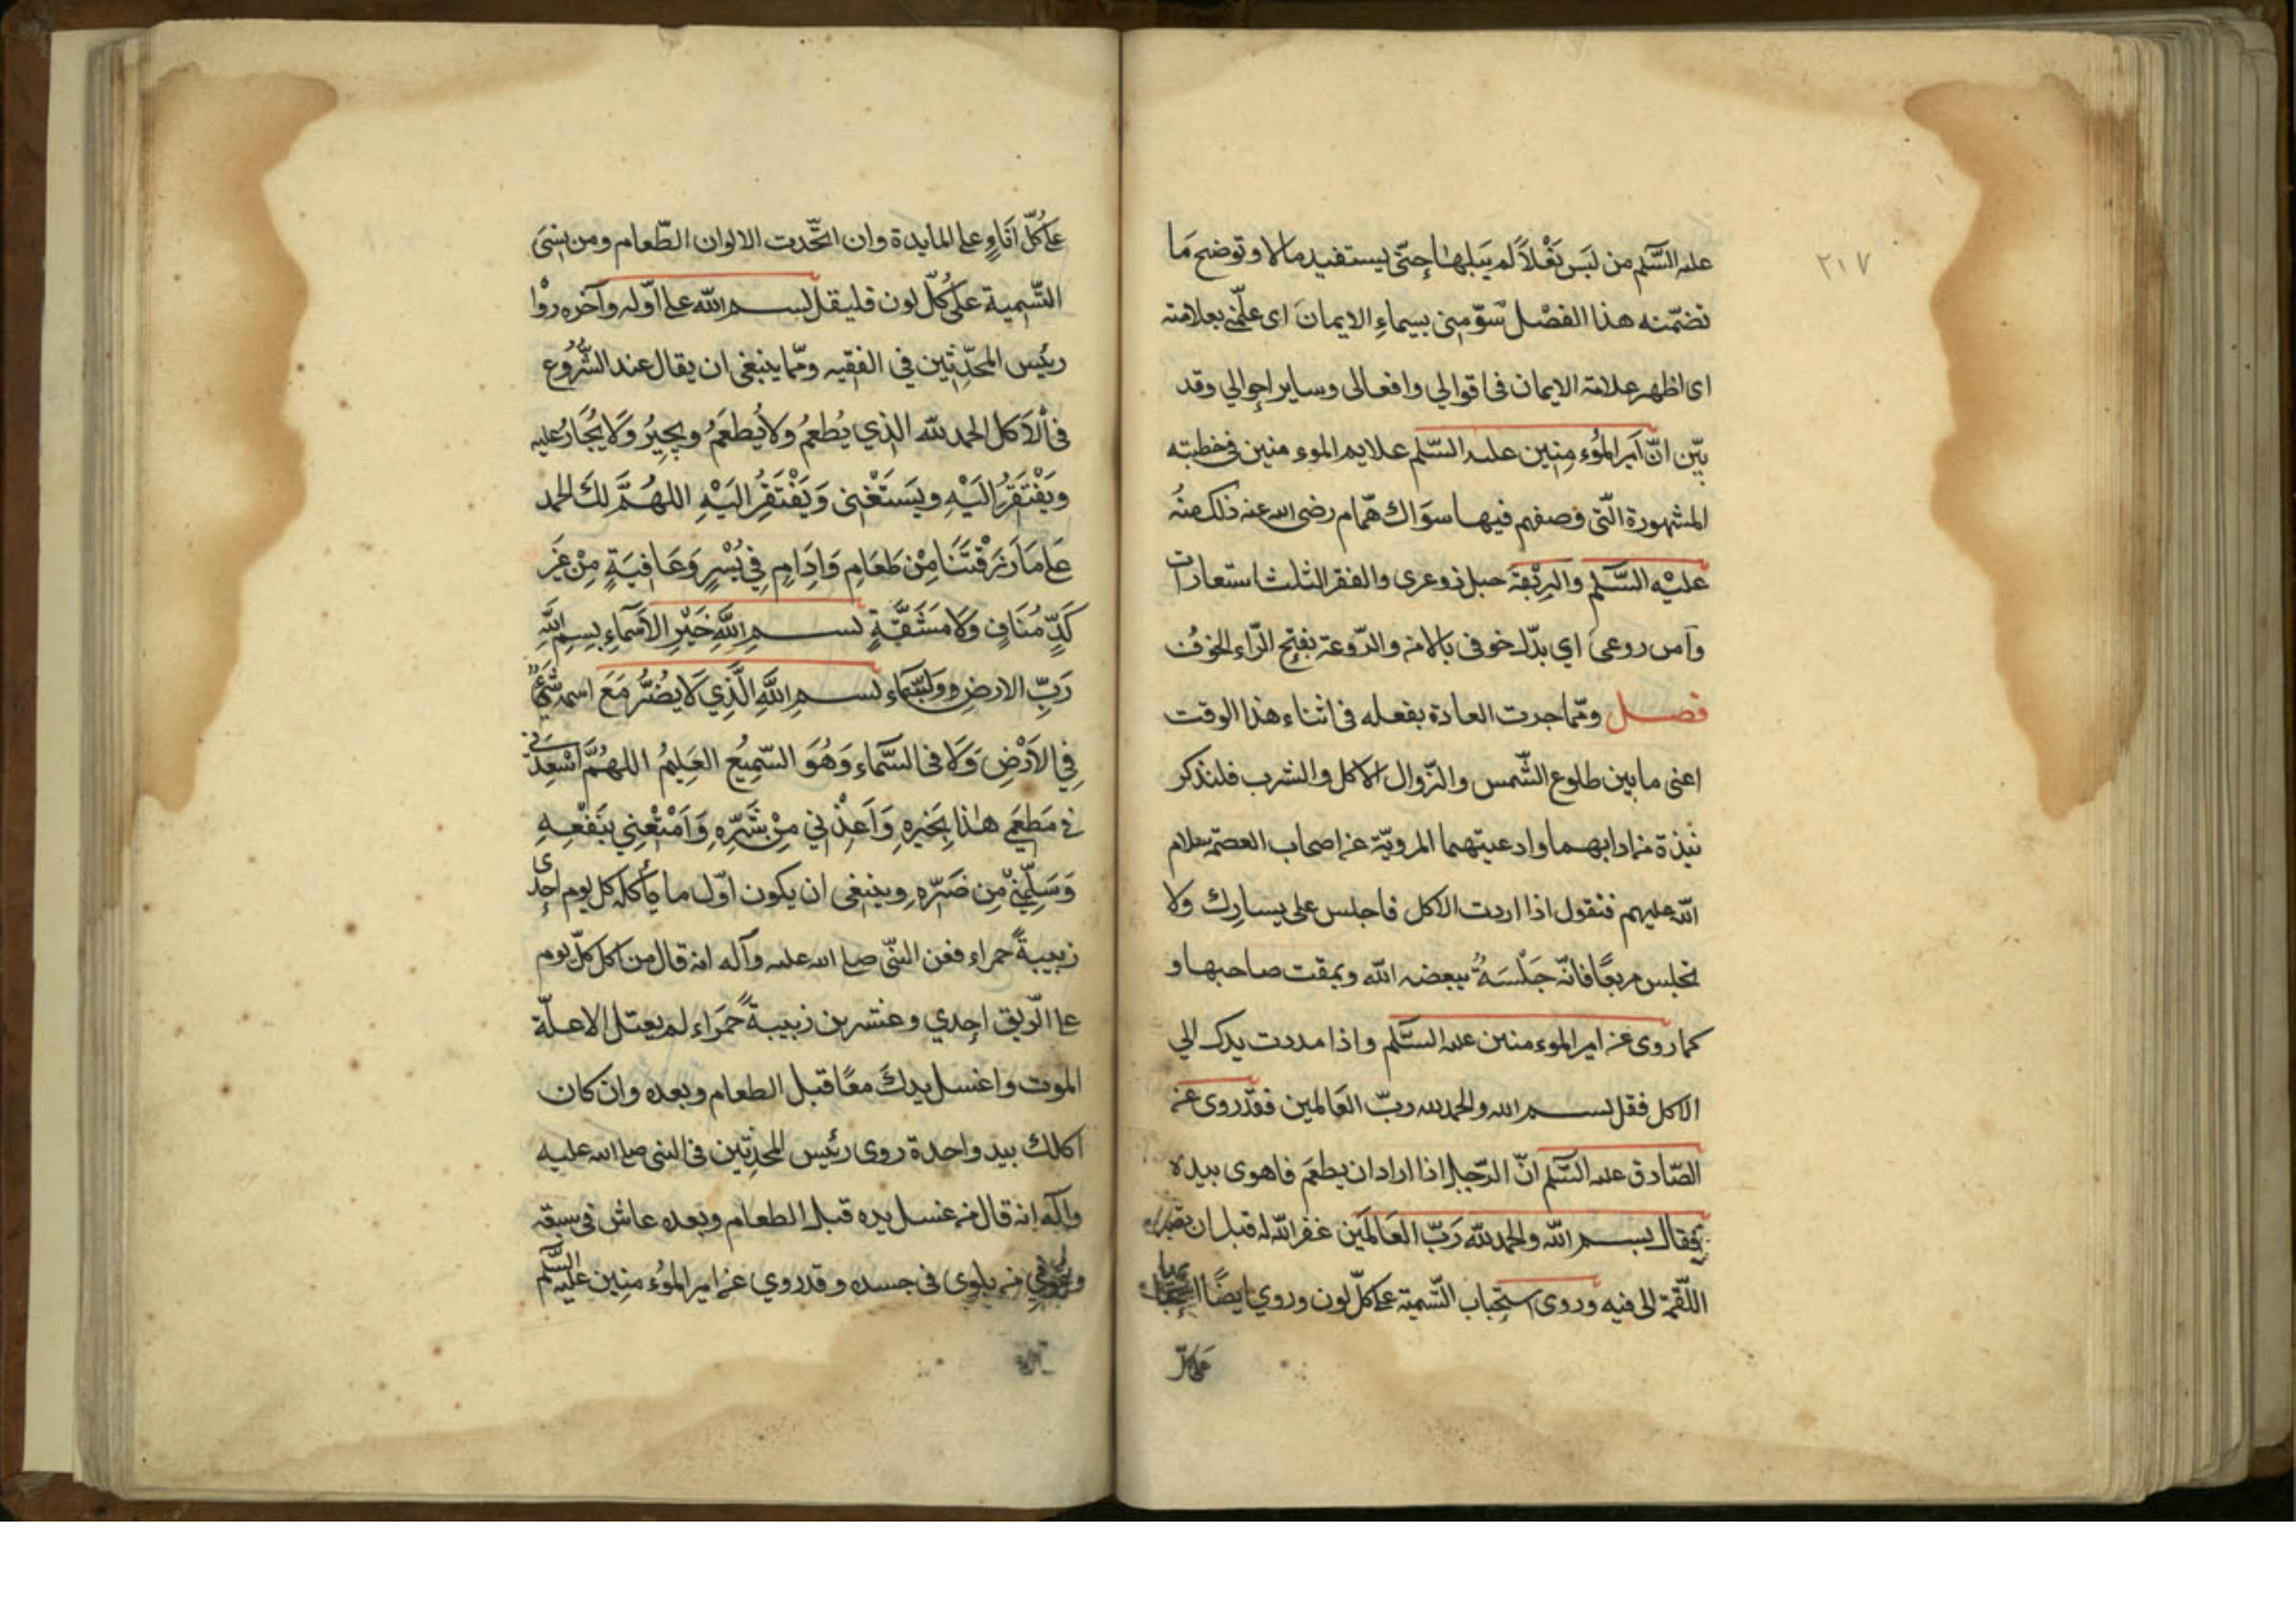 ٢١٧
عليه السَّلم من لبَس نَعْلاً لم يَبلها حتّى يستفيد مالا وتوضح مَا
تضمّنه هذا الفصْل سَوّمني بسيماءِ الايمان اى علّمني بعلامته
اى اظهر علامة الايمان فى اقوالي وافعالى وساير احوالي وقد
بيّن انّ اَمير المُوءمِنِين عليه السّلم علايم الموءمنين فى خطبته
المشهورة الّتى وصفهم فيها سوَاك همّام رضى الله عنه ذلك منهُ
عليْه السَّلم والرِبْقة حبل ذو عرى والفقر الثلث استعارات
وآمن روعى اي بدّل خوفى بالامن والرّوعة بفتح الرّاء الخوف
فصل وممّا جرت العادة بفعله فى اثناء هذا الوقت
اعنى ما بين طلوع الشّمس والزّوال الاكل والشرب فلنذكر
نبذة من ادابهما وادعيتهما المرويّة عن اصحاب العصمة سلام
الله عليهم فنقول اذا اردت الاكل فاجلس على يسارك ولا
تجلس مربعًا فانّه جَلْسَةُ يبغضه الله ويمقت صاحبها و
كما روى عن امير الموءمنين عليه السَّلم واذا مددت يدك الي
الاكل فقل بسم الله والحمد لله ربّ العَالمين فقد روى عن
الصّادق عليه السَّلم انّ الرّجل اذا اراد ان يطعَم فاهوى بيده
فقال بسم الله والحمد لله رَبّ العَالمَين غفر الله له قبل ان تصير
اللّقمة الى فيه وروى استحباب التّسمية على كلّ لون وروي ايضًا
على كلّ
على كُلّ اناءٍ وعلى المايدة وان اتّحدت الالوان الطّعام ومن نسى
التّسمية على كُلّ لون فليقل بسم الله على اوّله وآخره روا
رئيس المحدّثين في الفقيه وممّا ينبغى ان يقال عند الشُّرُوع
فى الاَكل الحمد لله الذي يُطعمُ ولا يُطعَمُ ويجِيرُ وَلا يُجَارُ عليه
ويَفْتَقرُ اليَْهِ ويَستَغْنى وَيَفْتَقِرُ اليَْهِ اللهُمَّ لك الحمد
عَلى مَا رَزَقْتَنَا مِنْ طَعَامٍ وَاِدَامٍ فِي يُسْرٍ وَعَافِيَةٍ مِنْ غَير
كَدٍّ مُنَافٍ وَلا مَشَقَّةٍ بسم اللهِ خَيْرِ الاَسمَاءِ بِسمِ اللهِ
رَبِّ الارضِ والسَّمَاء بسمِ اللهِ الَّذِي لاَ يَضُرُّ مَعَ اسمه شئ
فِي الاَرْضِ وَلا فى السَّمَاءِ وَهُوَ السّمِيعُ العَلِيمُ اللهُمَّ اَسْعِدْنى
فى مَطعَمي هٰذا بِخَيرِهِ وَاَعِذْني مِنْ شَرِّهِ وَاَمْتِعْنِي بنَفْعِهِ
وَسَلِّمْنِي مِن ضَرّهِ وينبغى ان يكون اوّل ما يأكله كل يوم احدى
زبيبةً حمراء فعن النبّى صلى الله عليه وآله انه قال من اكل كلّ يوم
على الرّيق احدي وعشرين زبيبةً حمَراء لم يعتل الا علّة
الموت واغسل يديكَ معًا قبل الطعام وبعده وان كان
اكلك بيد واحدة روى رئيس المحدّثين فى النبى صلى الله عليه
وآله انه قال من غسل يده قبل الطعام وبعده عاش فى سعة
وعوفي من بلوى فى جسده وقد روي عن امير الموُءمنِين عليه السَّلم